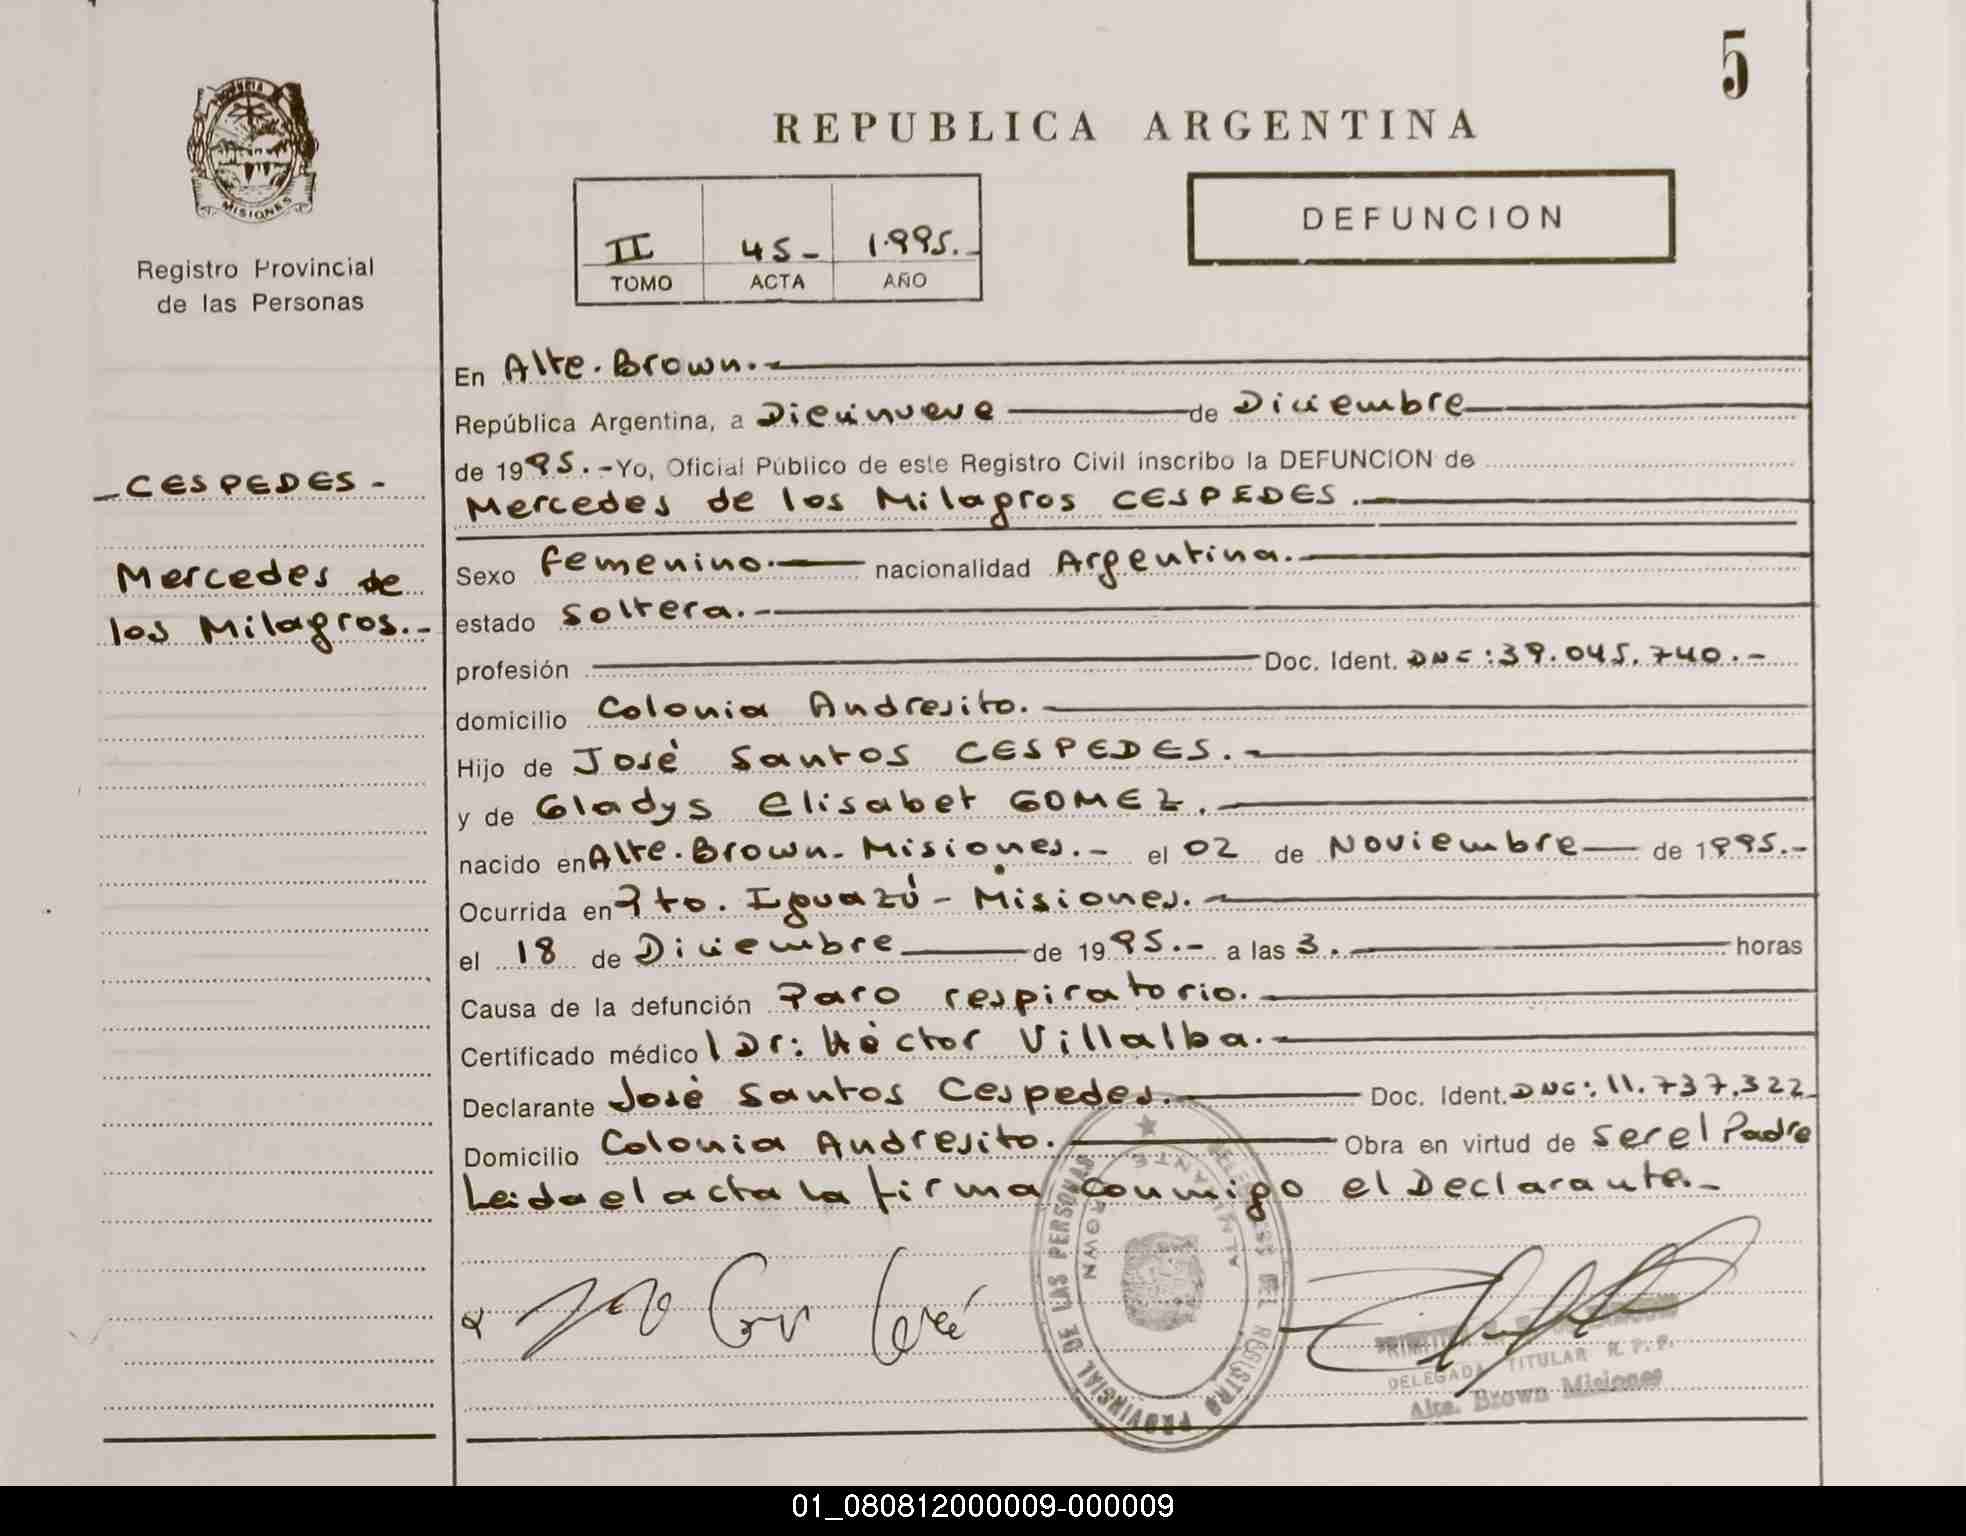 5
PROVINCIA
MISIONES
REPUBLICA ARGENTINA
DEFUNCION
II 45- 1.995.-
TOMO ACTA AÑO
Registro Provincial
de las Personas
En Alte. Brown.-
República Argentina, a Diecinueve de Diciembre
de 1995.- Yo, Oficial Público de este Registro Civil inscribo la DEFUNCION de
Mercedes de los Milagros CESPEDES.
-CESPEDES-
Mercedes de
los Milagros.-
Sexo Femenino. nacionalidad Argentina.
estado Soltera.-
profesión Doc. Ident. DNE: 39.045.740.-
domicilio Colonia Andresito.
Hijo de José Santos CESPEDES.-
y de Gladys Elisabet GOMEZ.
nacido en Alte. Brown- Misiones.- el 02 de Noviembre de 1995.-
Ocurrida en Pto. Iguazú - Misiones.
el 18 de Diciembre de 1995.- a las 3. horas
Causa de la defunción Paro respiratorio.
Certificado médico Dr: Héctor Villalba.-
Declarante José Santos Cespedes. Doc. Ident. DNE: 11.737.322
Domicilio Colonia Andresito. Obra en virtud de ser el Padre
Leida el acta la firma conmigo el Declarante.-
REGISTRO PROVINCIAL DE LAS PERSONAS
BROWN
DELEGADA TITULAR R. P. P.
Alte. Brown Misiones
01_080812000009-000009